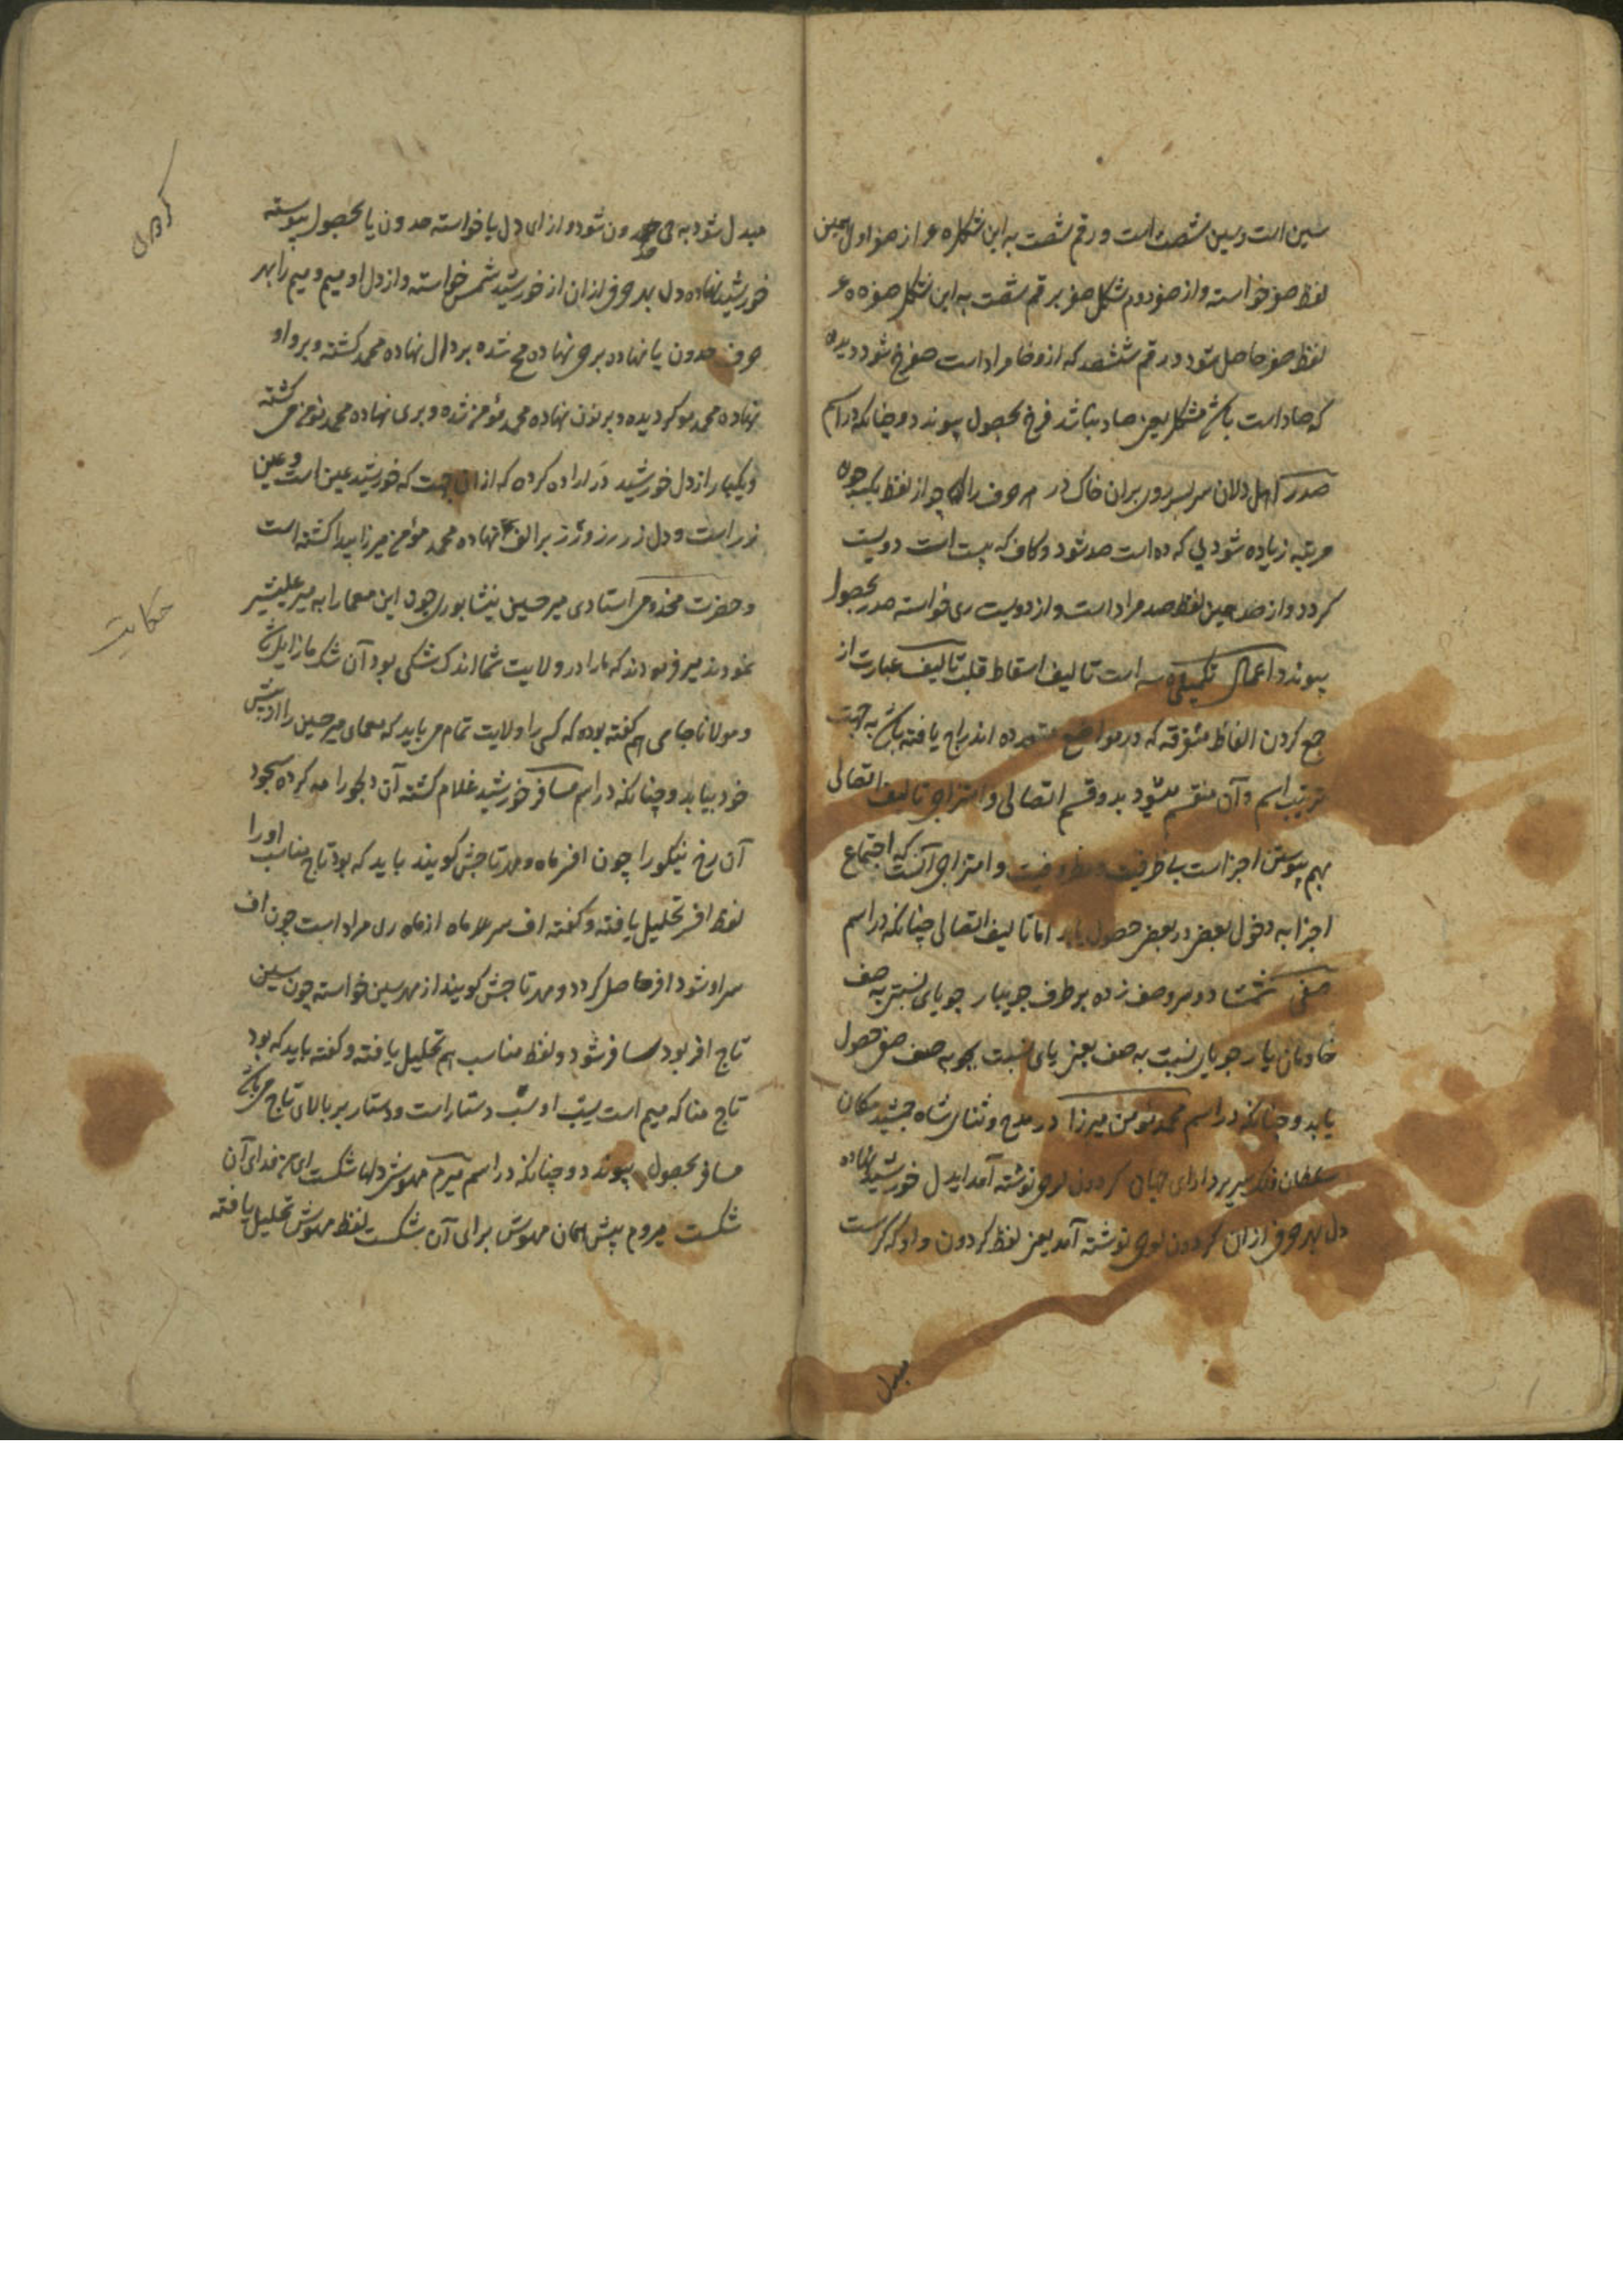 سین است و سین شصت است و رقم شصت به این شکل ه ع از صفر اول همین
لفظ صفر خواسته و از صفر دوم شکل صفر بر قم شصت به این شکل صفر ه ه ع
لفظ صفر حاصل شود و رقم ششصد که از و خا مراد است صفرخ شود دیده
که صاد است باشکل یعنی صاد نباشد فرخ بحصول پیوندد و چنانکه در اسم
صدر اهل دلان سر بسر ور بران خاک در هر حرف را که چو از لفظ یک چو
مرتبه زیاده شود یی که ده است صد شود و کاف که بیست است دویست
کردد و از صد همین لفظ صد مراد است و از دویست ری خواسته صدر بحصول
پیوندد اعمال تکمیلی سه است تالیف اسقاط قلب تالیف عبارت از
جمع کردن الفاظ متفرقه که در مواضع متعدده اندراج یافته باشد به جهت
ترتیب اسم و آن منقسم میشود بدو قسم اتصالی و امتزاجی تالیف اتصالی
بهم پیوستن اجزاست بی ظرفیت و مظروفیت و امتزاجی آنست که اجتماع
اجزا به دخول بعضی در بعضی حصول یابد اما تالیف اتصالی چنانکه در اسم
صفی شمشاد و سرو صف زده بر طرف جویبار جویای نسبتی به صف
خادمان یار جویای نسبت به صف یعنی یای نسبت بجو به صف صفی حصول
یابد و چنانکه در اسم محمد مؤمن میرزا در مدح و ثنای شاه جمشید مکان
سلطان فلک سریر دارای جهان کردون لوحی نوشته آمد ایدل خورشید نهاده
دل بهر حرف از ان کردون لوحی نوشته آمد یعنی لفظ کردون و او که کرست
مبدل
مبدل شود به حی حمدون شود و از ای دل یا خواسته حمدون یا بحصول پیوسته
خورشید نهاده دل بهر حرفی از ان از خورشید شمس خواسته و از دل او میم و میم را بهر
حرف حمدون یا نهاده بر حی نهاده مح شده بر دال نهاده محمد کشته و بر واو
نهاده محمد مو کردیده و بر نون نهاده محمد مؤمن شده و بر ی نهاده محمد مؤمن می کشته
و یکبار از دل خورشید در اراده کرده که از ان جهت که خورشید عین است و عین
زر است و دل زر رز و رز بر الف نهاده محمد مؤمن میرزا پیدا کشته است
و حضرت مخدومی استادی میر حسین نیشابوری چون این معما را به میر علیشیر
نمودند میر فرمودند که ما را در ولایت شما اندک شکی بود آن شک ما زایل شد
و مولانا جامی هم کفته بوده که کسی را ولایت تمام می باید که معمای میر حسین را از پیش
خود بیابد و چنانکه در اسم مسافر خورشید غلام کشته آن دلجو را مه کرده سجود
آن رخ نیکو را چون افسر ماه و مهر تاجش کویند باید که بود تاج مناسب او را
لفظ افسر تحلیل یافته و کفته اف سر ماه از ماه ری مراد است چون اف
سر او شود افر حاصل کردد و مهر تاجش کویند از مهر سین خواسته چون سین
تاج افر بود سافر شود و لفظ مناسب هم تحلیل یافته و کفته باید که بود
تاج منا که میم است
مسافر بحصول پیوندد و چنانکه در اسم میرم مهوش دلها شکست ای من فدای آن
شکست میروم پیش همان مهوش برای آن شکست لفظ مهوش تحلیل یافته
حکایت